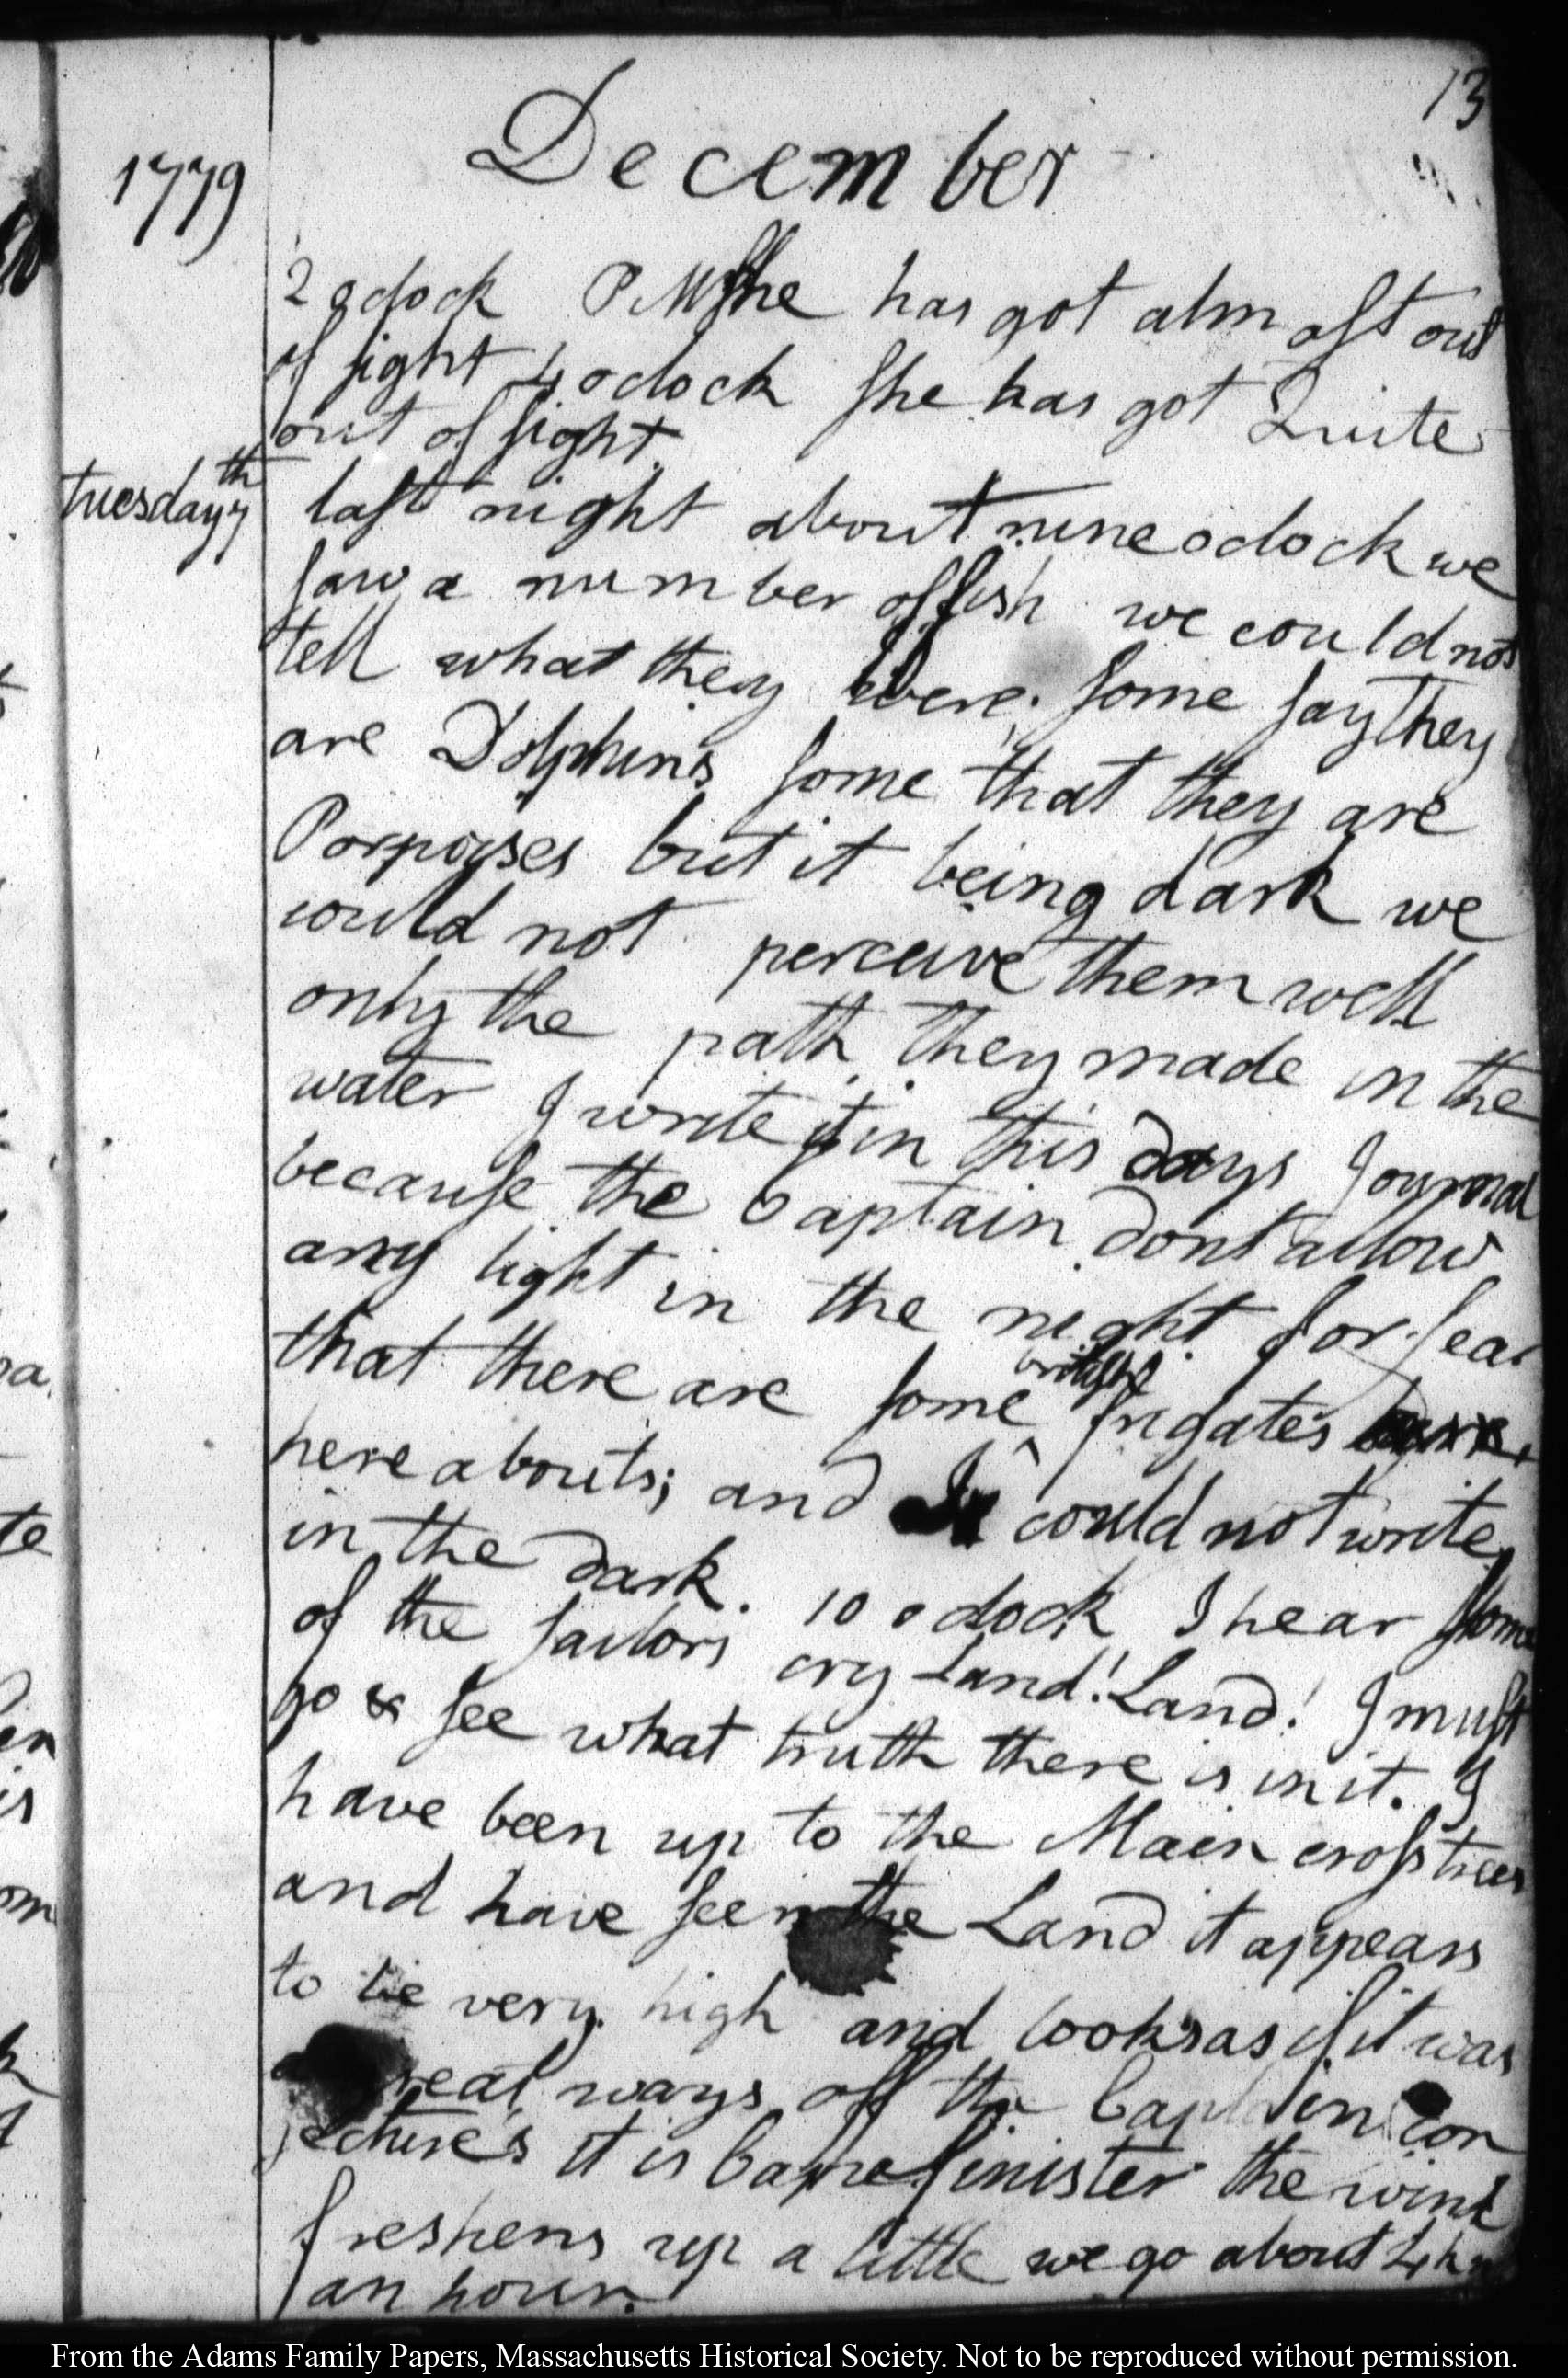 13
1779
December
2 oclock PM She has got almost out
of sight 4 oclock she has got Quite
out of sight.
tuesday 7th
last night about nine oclock we
saw a number of fish we could not
tell what they were. some say they
are Dolphins some that they are
Porpoises but it being dark we
could not perceive them well
only the path they made in the
water I write it in this days Journal
because the Captain dont allow
any light in the night for fear
that there are some british frigates
here abouts; and I could not write
in the dark. 10 oclock I hear some
of the sailors cry Land! Land! I must
go & see what truth there is in it. I
have been up to the Main cross trees
and have seen the Land it appears
to be very high and looks as if it was
a great ways off the Captain con
jectures it is Cape finister the wind
freshens up a little we go about 4
an hour.
From the Adams Family Papers, Massachusetts Historical Society. Not to be reproduced without permission.